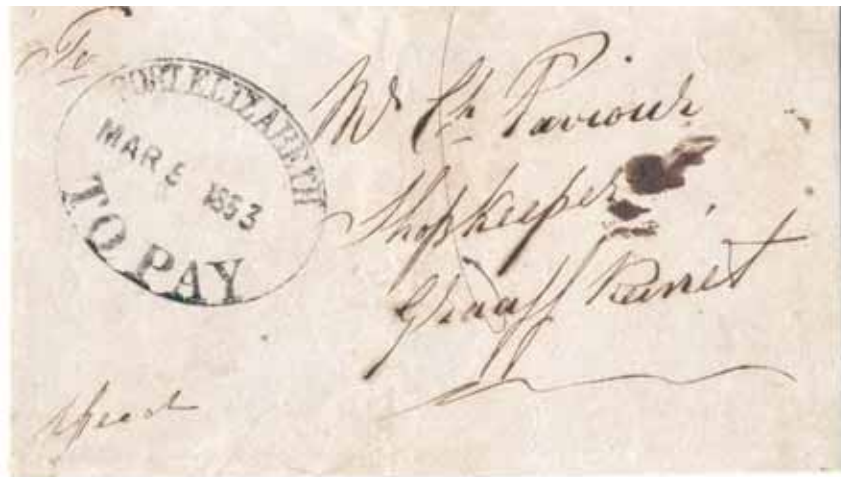 To
PORT ELIZABETH
MAR 5 1853
TO PAY
Mr Ch Paviour
Shopkeeper
Graaff Reinet